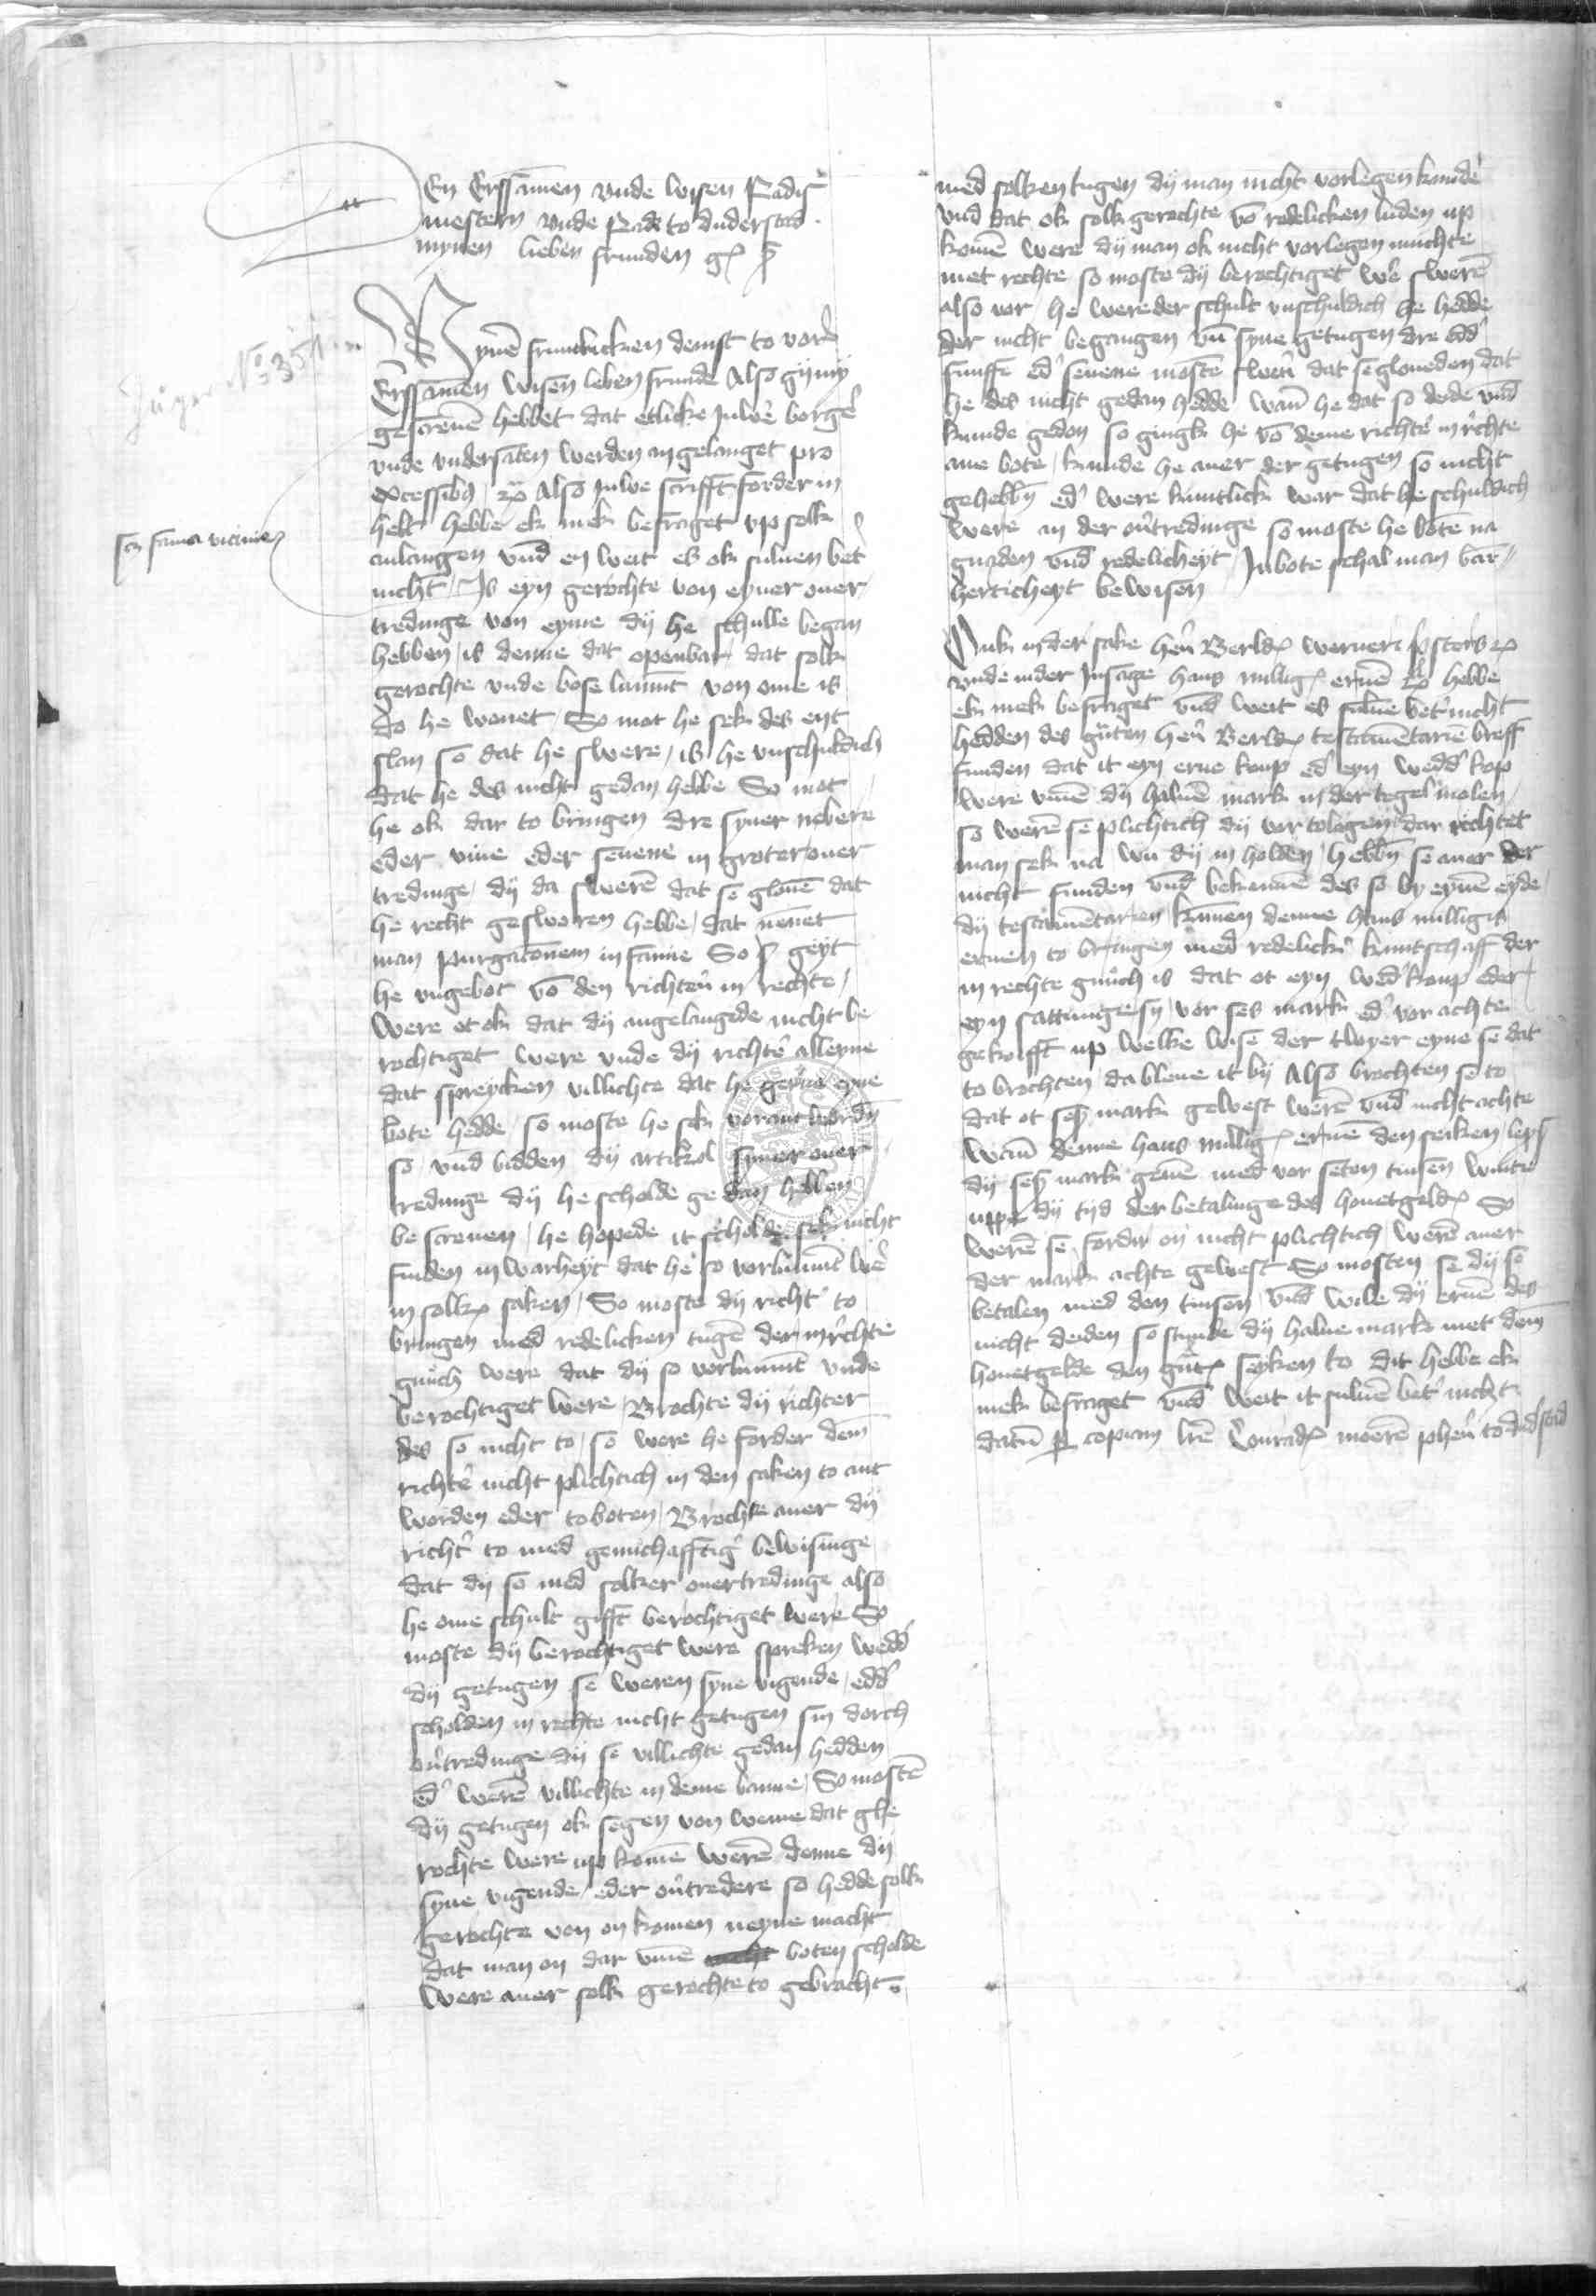 En Erssamen vnde wisen Radis
mestern vnde Rade to duderstad
mynen lieben frunden
Mynē fruntlicken deinst to vorn
Erssamen wisen leben frunde Also gy my
gescreuē hebbet dat etlicke Juwer borger
vnde vndersaten werden angelanget pro
excessibus Also Juwe scrifft forder in
helt hebbe ek mek befraget vp solk
anlangen vnd en weit es ok suluen bet
nicht / Is eyn gerochte von eyner ouer
tredinge von eyme dij he schulle began
hebben / is denne dat openbar dat solk
gerochte vnde bose laumt von ome is
do he wonet / So mot he sek des ent
slan so dat he swere / is he vnschuldich
dat he des nicht gedan hebbe So mot
he ok dar to bringen dre syner nebere
eder viue eder seuene in groter ouer
tredinge / dij da swerē dat se glouē dat
he recht gesworen hebbe / dat nēnet
man purgationem infamie So geyt
he vngebot vō den richter in rechte /
Were et ok dat dij angelangede nicht be
rochtiget were vnde dij richter alleyne
dat spreycken villichte dat he gerne eyne
bote hedde / so moste he sek vorantwordn
so / vnd bidden dij artikel syner ouer
tredinge dij he scholde gedan hebben
bescreuen / he hopede it scholde sek nicht
finden in warheyt dat he so vorlumt wer
in solken saken / So moste dij richter to
bringen med redelicken tugē der in rechte
gnuch were dat dij so vorlumt vnde
berochtiget were / Brochte dij richter
des so nicht to / so were he forder dem
richter nicht plichtich in den saken to ant
worden eder to boten / Brochte auer dij
richter to med genuchafftiger bewisinge
dat dij so med solker ouertredinge also
he ome schult gifft berochtiget were So
moste dij berochtiget were spreken wedd
dij getugen se weren syne vigende / edd
scholden in rechte nicht getugen sin dorch
ouertredinge dij se villichte gedan hedden
ed werē villichte in deme banne / So mostē
dij getugen ok segen von weme dat ghe
rochte were up komē werē denne dij
syne vigende / eder ouertredere so hedde solk
gerochte von on komen neyne macht
dat man on dar vmē boten scholde
Were auer solk gerochte to gebracht
sc fama vicinie
Jäger No 351
med solken tugen dij man nicht vorlegen kunde
vnd dat ok solk gerochte vō redelicken luden up
komē were dij man ok nicht vorlegen muchte
met rechte so moste dij berochtiget wer swerē
also vor / he were der schult vnschuldich he hedde
der nicht begangen vn syne getugen dre edd
funffe ed seuene mostē swern dat se gloueden dat
he des nicht gedan hedde wan he dat so dede vnd
kunde gedon so gingk he vō deme richter in rechte
ane bote / kunde he auer der getugen so nicht
gehebbn ed were kuntlick war dat he schuldich
were an der ouertredinge so moste he bote na
gnaden vnd redelicheyt / In bote schal man bar
herticheyt bewisen
Ouk in der sake hern Bertolds werneri
vnde in der Insage hans milligs eruē hebbe
ek mek befraget vnd weit es suluē bet nicht
hedden des guten hern Bertolds testamētarie breff
funden dat it eyn erue koup ed eyn wedd kop
were vmē dij haluē mark in der tegel molen /
so werē se plichtich dij vor to legen / dar richtet
man sek na wu dij in holden / hebbn se auer der
nicht funden vnd bekennē des so by eynē eyde /
dij testamētarien kūnen denne hans milligis
eruen to bringen med redelicker kuntschaff der
in rechte gnuch is dat et eyn wed koup eder
eyn sattunge sy / vor ses mark ed vor achte
gekofft up welke wise der twyer eyne se dat
to brochten da bleue it by Also brochten se to
dat et ses mark gewest werē vnd nicht achte
Wan denne hans milligs eruē den seiken
dij ses mark geuē med vor seten tinsen wente
uppe dij tijd der betalinge des houetgeldes So
werē se forder on nicht plichtich / werē auer
der mark achte gewest So mosten se dij se
betalen med den tinsen / vnd wile dij eruē des
nicht deden so stunde dij halue mark met dem
houetgelde den guten seyken to dit hebbe ek
mek befraget vnd weit it suluē bet nicht
datū per copiam